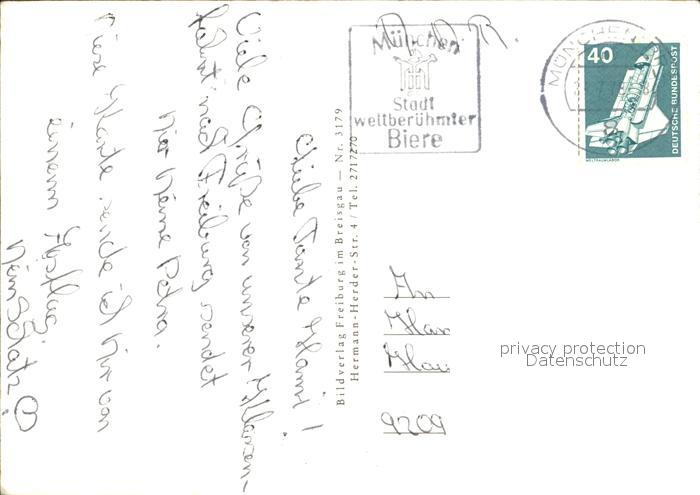 Liebe Tante Hanni!
Viele Grüße von unserer Klassen-
fahrt nach Freiburg sendet
Dir Deine Petra.
Diese Karte sende ich Dir von
einem Ausflug.
Dein Schatz
Bildverlag Freiburg im Breisgau — Nr. 3179
Hermann-Herder-Str. 4 / Tel. 2717270
München
Stadt
weltberühmter
Biere
MÜNCHEN
40
DEUTSCHE BUNDESPOST
WELTRAUMLABOR
An
Han
Hau
9209
privacy protection
Datenschutz